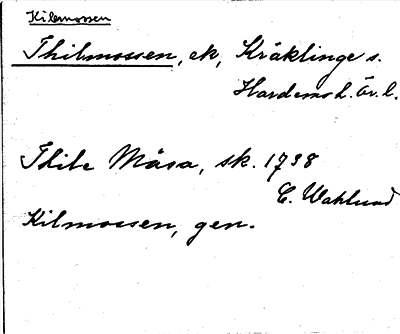 Kilmossen
Thilmossen, ek, Kräklinge s.
Hardemo h. Ör. l.
Thile Måsa, sk. 1738
C. Wahlund
Kilmossen, gen.